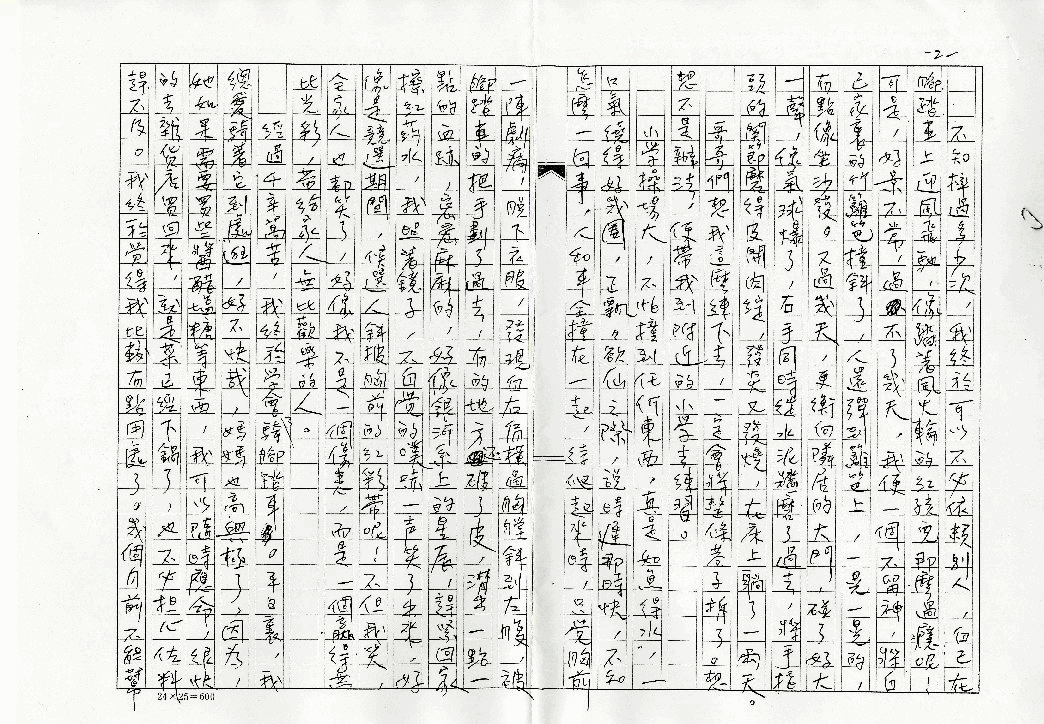 -2-
不知摔過多少次，我終於可以不必依賴別人，自己在
腳踏車上迎風飛馳，像踏著風火輪的紅孩兒那麼過癮呢！
可是，好景不常，過不了幾天，我便一個不留神，將自
己家裏的竹籬笆撞斜了，人還彈到籬笆上，一晃一晃的，
有點像坐沙發。又過幾天，更衝向隣居的大門，碰了好大
一聲，像氣球爆了，右手同時從水泥牆磨了過去，將手指
頭的關節磨得皮開肉綻，發炎又發燒，在床上躺了一兩天。
哥哥們想我這麼練下去，一定會將整條巷子拆了。想
想不是辦法，便帶我到附近的小學去練習。
小學操場大，不怕撞到任何東西，真是如魚得水，一
口氣繞得好幾圈，正飄飄欲仙之際，說時遲那時快，不知
怎麼一回事，人和車全撞在一起，待爬起來時，只覺胸前
一陣劇痛，脫下衣服，發現自右肩橫過胸膛斜到左腹，被
腳踏車的把手劃了過去，有的地方還破了皮，滲出一點一
點的血跡，密密麻麻的，好像銀河系上的星辰，趕緊回家
擦紅藥水，我照著鏡子，不自覺的噗哧一聲笑了出來，好
像是競選期間，候選人斜披胸前的紅彩帶呢！不但我笑，
全家人也都笑了，好像我不是一個傷患，而是一個贏得無
比光彩，帶給家人無比歡樂的人。
經過千辛萬苦，我終於學會騎腳踏車。平日裏，我
總愛騎著它到處逛，好不快哉，媽媽也高興極了，因為，
她如果需要買些醬醋塩糖等東西，我可以隨時應命，很快
的去雜貨店買回來，就是菜已經下鍋了，也不必担心佐料
趕不及。我終於覺得我比較有點用處了。幾個月前不能幫
24×25=600